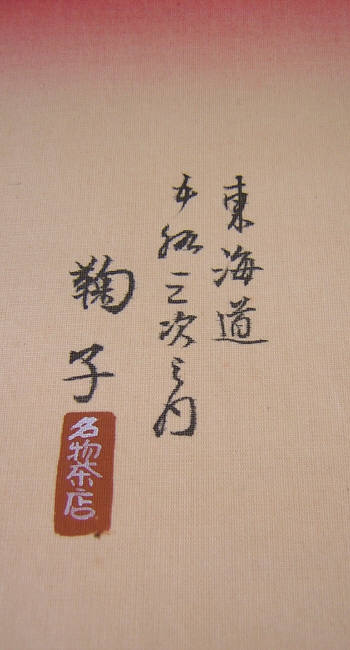 東海道
五拾三次之内
鞠子
名物茶店